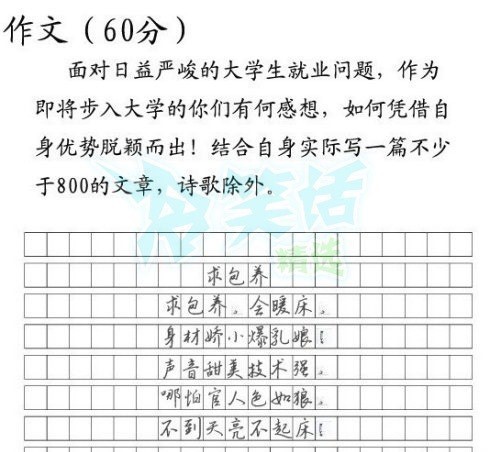 作文（60分）
面对日益严峻的大学生就业问题，作为
即将步入大学的你们有何感想，如何凭借自
身优势脱颖而出！结合自身实际写一篇不少
于800的文章，诗歌除外。
精选
求包养
求包养。会暖床。
身材娇小爆乳娘！
声音甜美技术强。
哪怕官人色如狼。
不到天亮不起床！